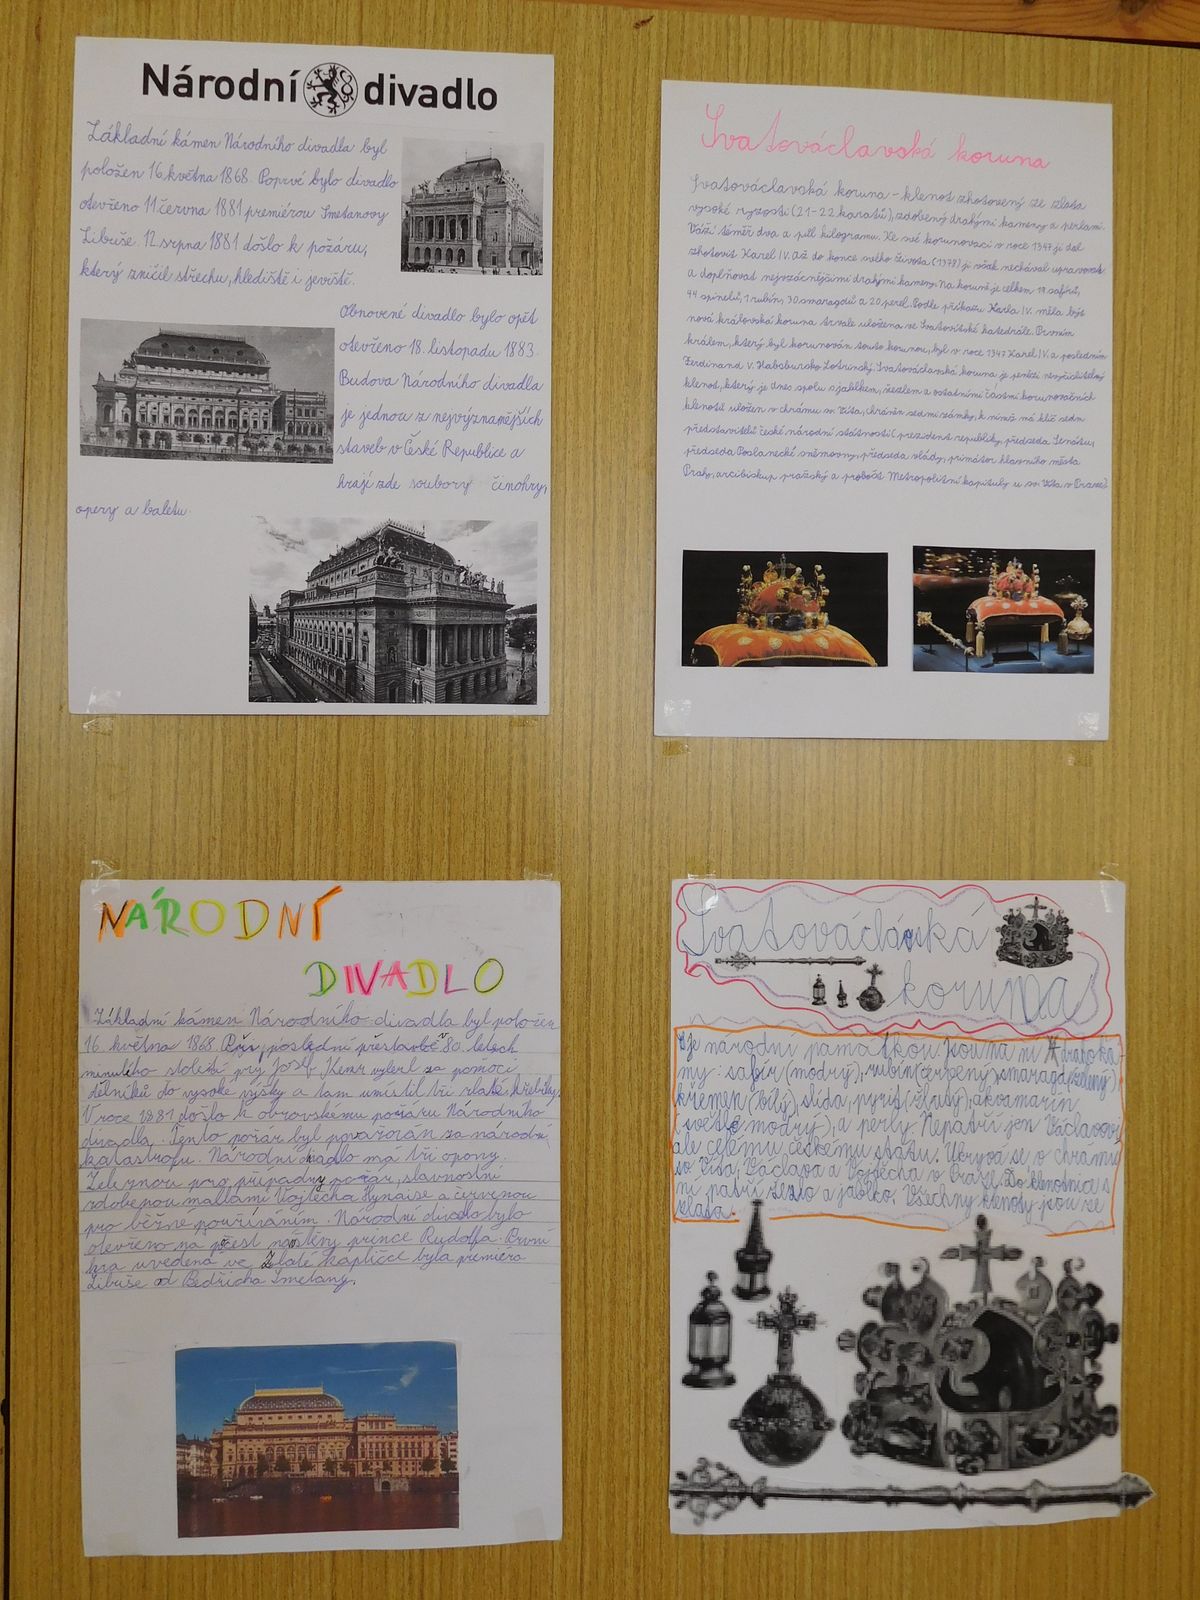 Národní divadlo
Základní kámen Národního divadla byl
položen 16. května 1868. Poprvé bylo divadlo
otevřeno 11. června 1881 premiérou Smetanovy
Libuše. 12. srpna 1881 došlo k požáru,
který zničil střechu, hlediště i jeviště.
Obnovené divadlo bylo opět
otevřeno 18. listopadu 1883.
Budova Národního divadla
je jednou z nejvýznamějších
staveb v České Republice a
hrají zde soubory činohry,
opery a baletu.
Svatováclavská koruna
Svatováclavská koruna - klenot zhotovený ze zlata
vysoké ryzosti (21-22 karatů), zdobený drahými kameny a perlami.
Váží téměř dva a půl kilogramu. Ke své korunovaci v roce 1347 ji dal
zhotovit Karel IV. Až do konce svého života (1378) ji však nechával upravovat
a doplňovat nejvzácnějšími drahými kameny. Na koruně je celkem 19 safírů,
44 spinelů, 1 rubín, 30 smaragdů a 20 perel. Podle příkazu Karla IV. měla být
nová královská koruna trvale uložena ve Svatovítské katedrále. Prvním
králem, který byl korunován touto korunou, byl v roce 1347 Karel IV. a posledním
Ferdinand V. Habsbursko Lotrinský. Svatováclavská koruna je penězi nevyčíslitelný
klenot, který je dnes spolu s jablkem, žezlem a ostatními částmi korunovačních
klenotů uložen v chrámu sv. Víta, chráněn sedmi zámky, k nimž má klíč sedm
představitelů české národní státnosti (prezident republiky, předseda Senátu,
předseda Poslanecké sněmovny, předseda vlády, primátor hlavního města
Prahy, arcibiskup pražský a probošt Metropolitní kapituly u sv. Víta v Praze).
NÁRODNÍ
DIVADLO
Základní kámen Národního divadla byl položen
16. května 1868. Při poslední přestavbě v 80. letech
minulého století prý Josef vylezl za pomoci
dělníků do vysoké výšky a tam umístil tři zlaté hřebíky.
V roce 1881 došlo k obrovskému požáru Národního
divadla. Tento požár byl považován za národní
katastrofu. Národní divadlo má tři opony.
Železnou pro případ požáru, slavnostní
zdobenou malbami Vojtěcha Hynaise a červenou
pro běžné používáním. Národní divadlo bylo
otevřeno na počest návštěvy prince Rudolfa. První
hra uvedená ve Zlaté kapličce byla premiéra
Libuše od Bedřicha Smetany.
Svatováclavská
koruna
Je národní památkou. Jsou na ní drahoka-
my: safír (modrý), rubín (červený), smaragd (zelený),
křemen (bílý), slída, pyrit (žlutý), akvamarín
(světle modrý), a perly. Nepatří jen Václavovi
ale celému českému státu. Ukrývá se v chrámu
sv. Víta, Václava a Vojtěcha v Praze. Do klenotnic s
ní patří žezlo a jablko. Všechny klenoty jsou ze
zlata.